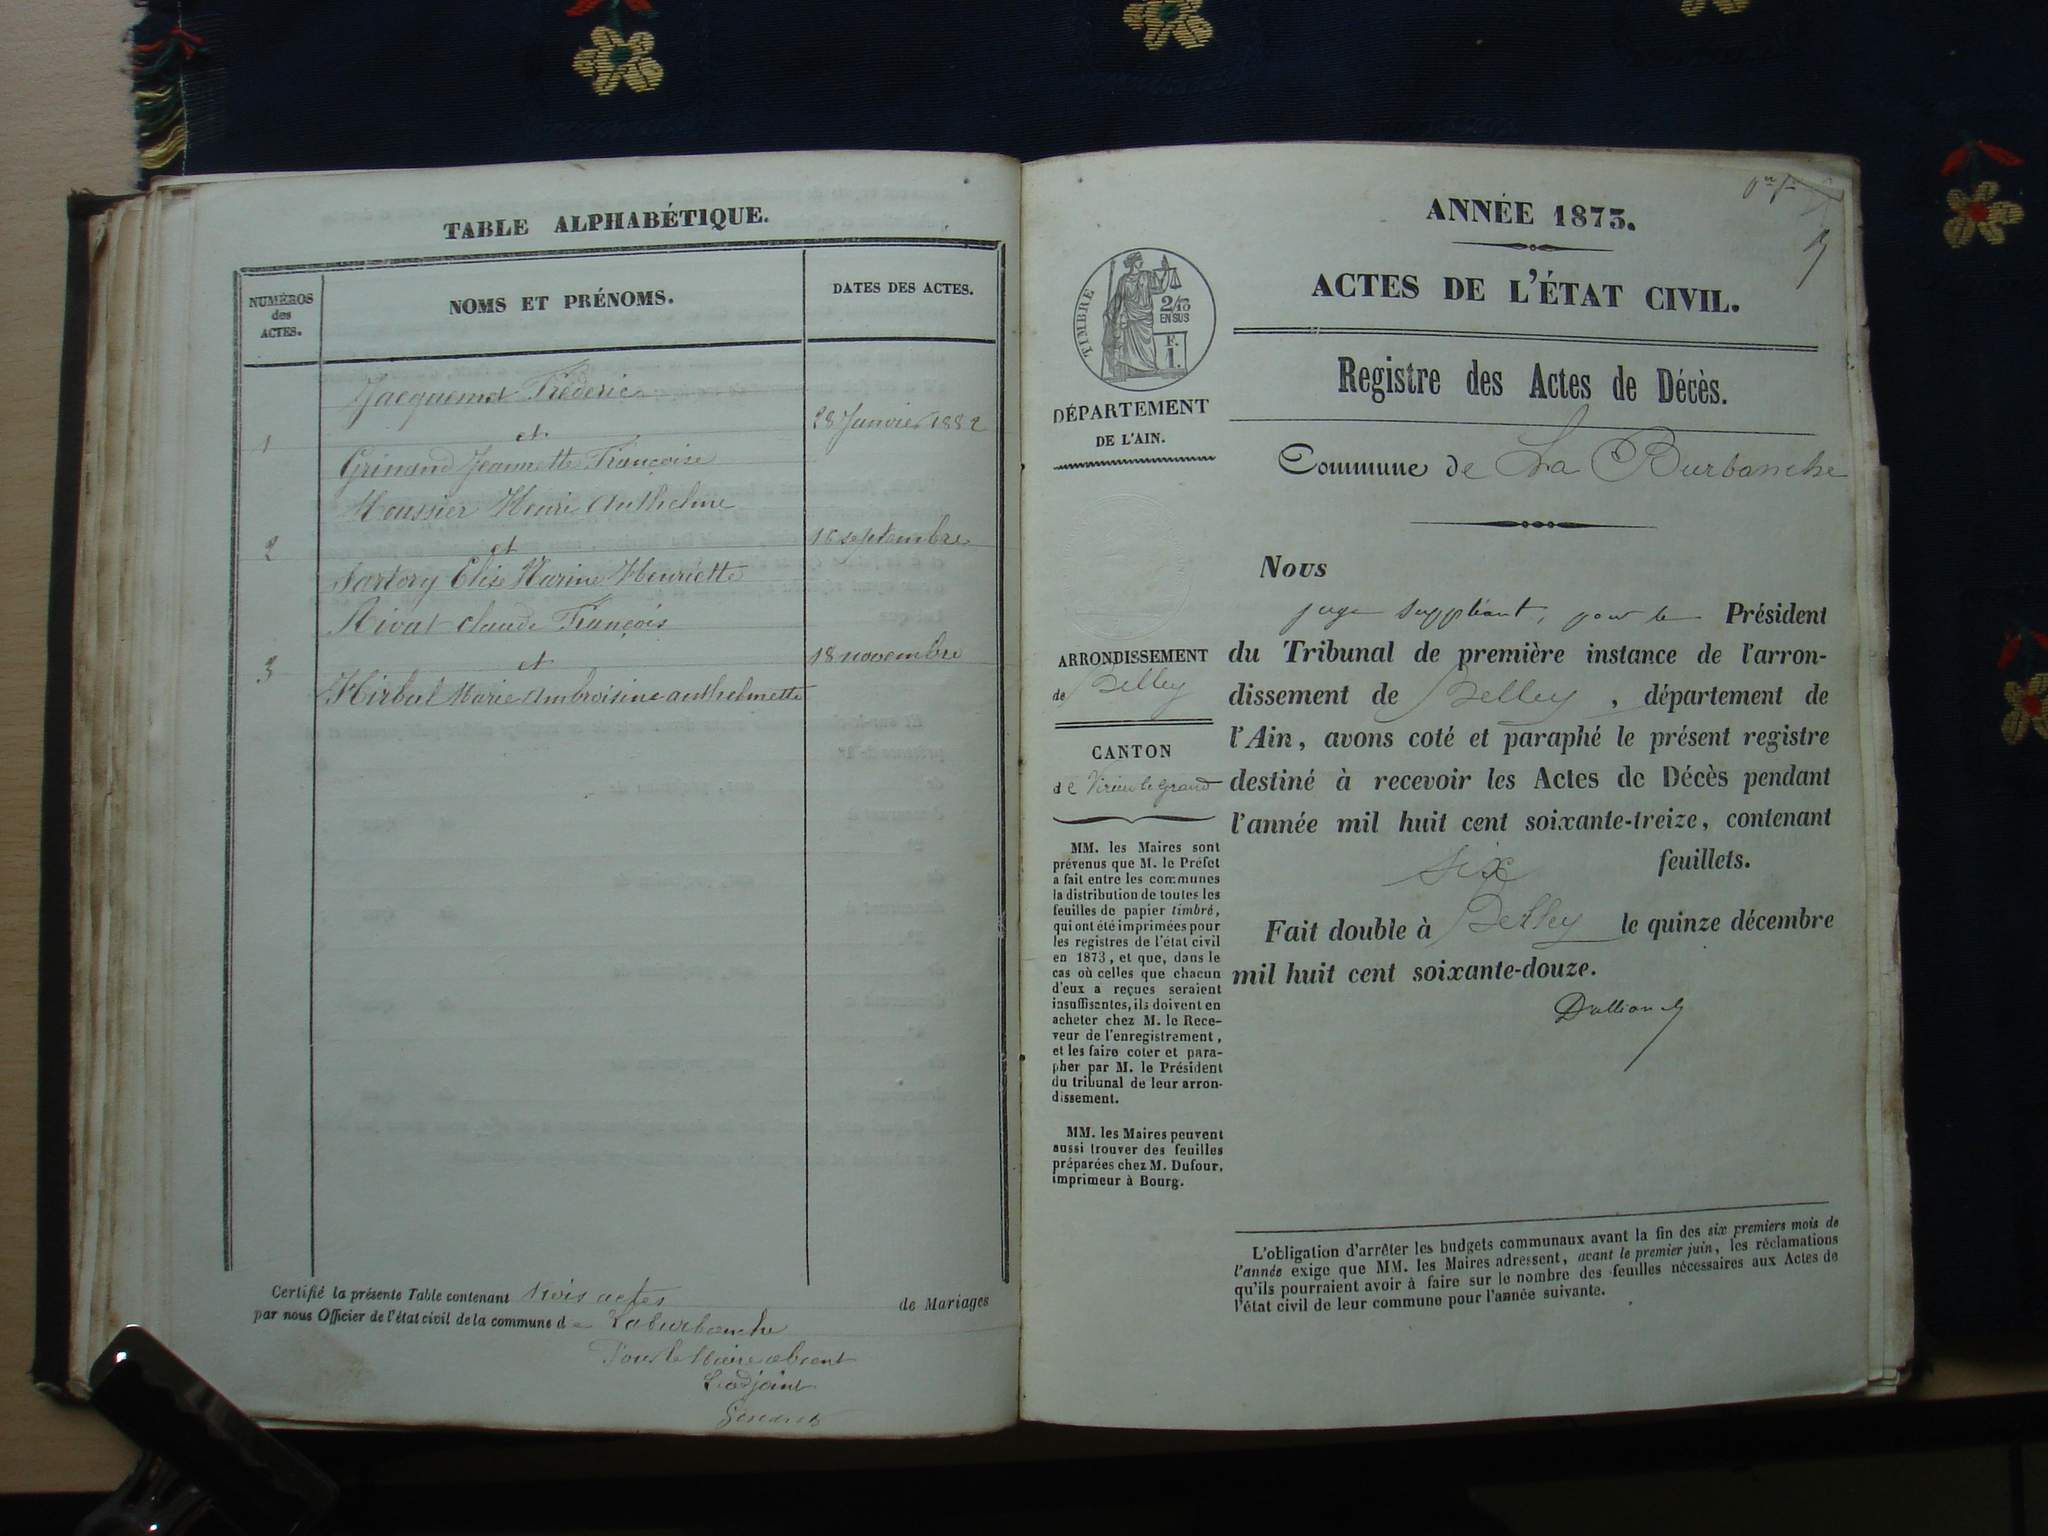 TABLE ALPHABÉTIQUE.
NUMÉROS
des
ACTES.
NOMS ET PRÉNOMS.
DATES DES ACTES.
Jacquemet Frédéric
1
et
28 Janvier 1882
Grinand Jeannette Françoise
Moussier Henri Anthelme
2
et
16 septembre
Sartory Elise Marine Henriette
Rivat claude François
3
et
18 novembre
Marie Ambroisine anthelmette
Certifié la présente Table contenant trois actes de Mariages
par nous Officier de l'état civil de la commune de Laburbanche
Pour le Maire absent
L'adjoint
ANNÉE 1873.
ACTES DE L'ÉTAT CIVIL.
TIMBRE
2/10
EN SUS
F.
1.
Registre des Actes de Décès.
DÉPARTEMENT
DE L'AIN.
Commune de La Burbanche
Nous
juge suppléant, pour le Président
du Tribunal de première instance de l'arron-
dissement de Belley, département de
l'Ain, avons coté et paraphé le présent registre
destiné à recevoir les Actes de Décès pendant
l'année mil huit cent soixante-treize, contenant
six feuillets.
Fait double à Belley le quinze décembre
mil huit cent soixante-douze.
ARRONDISSEMENT
de Belley
CANTON
de Virieu le grand
MM. les Maires sont
prévenus que M. le Préfet
a fait entre les communes
la distribution de toutes les
feuilles de papier timbré,
qui ont été imprimées pour
les registres de l'état civil
en 1873, et que, dans le
cas où celles que chacun
d'eux a reçues seraient
insuffisantes, ils doivent en
acheter chez M. le Rece-
veur de l'enregistrement,
et les faire coter et para-
pher par M. le Président
du tribunal de leur arron-
dissement.
MM. les Maires peuvent
aussi trouver des feuilles
préparées chez M. Dufour,
imprimeur à Bourg.
L'obligation d'arrêter les budgets communaux avant la fin des six premiers mois de
l'année exige que MM. les Maires adressent, avant le premier juin, les réclamations
qu'ils pourraient avoir à faire sur le nombre des feuilles nécessaires aux Actes de
l'état civil de leur commune pour l'année suivante.